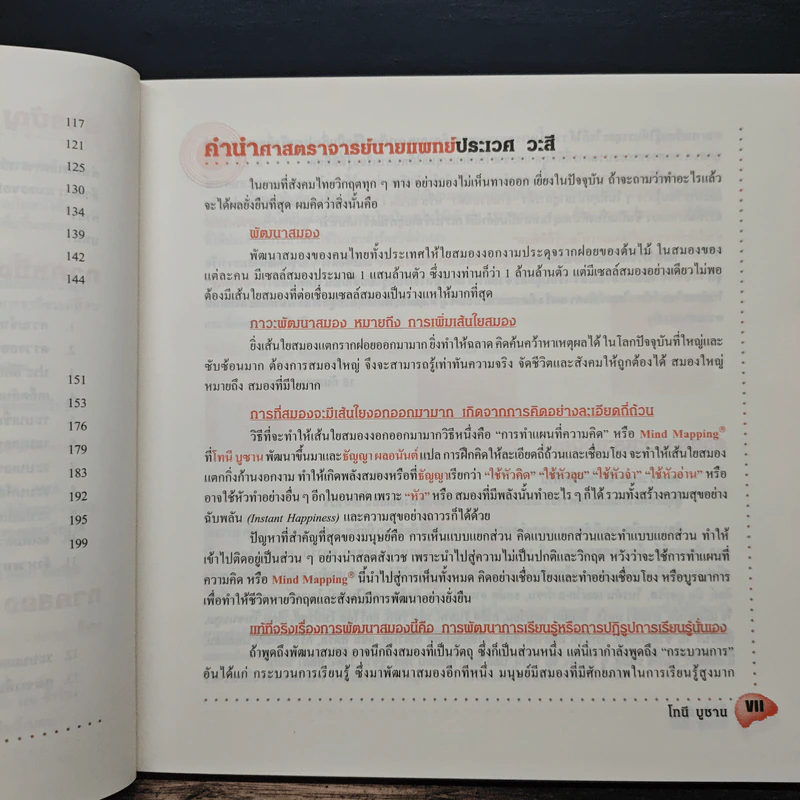 117
121
125
130
134
139
142
144
151
153
176
179
183
192
195
199
คำนำศาสตราจารย์นายแพทย์ประเวศ วะสี
ในยามที่สังคมไทยวิกฤตทุก ๆ ทาง อย่างมองไม่เห็นทางออก เยี่ยงในปัจจุบัน ถ้าจะถามว่าทำอะไรแล้ว
จะได้ผลยั่งยืนที่สุด ผมคิดว่าสิ่งนั้นคือ
พัฒนาสมอง
พัฒนาสมองของคนไทยทั้งประเทศให้ใยสมองงอกงามประดุจรากฝอยของต้นไม้ ในสมองของ
แต่ละคน มีเซลล์สมองประมาณ 1 แสนล้านตัว ซึ่งบางท่านก็ว่า 1 ล้านล้านตัว แต่มีเซลล์สมองอย่างเดียวไม่พอ
ต้องมีเส้นใยสมองที่ต่อเชื่อมเซลล์สมองเป็นร่างแหให้มากที่สุด
ภาวะพัฒนาสมอง หมายถึง การเพิ่มเส้นใยสมอง
ยิ่งเส้นใยสมองแตกรากฝอยออกมามาก ยิ่งทำให้ฉลาด คิดค้นคว้าหาเหตุผลได้ ในโลกปัจจุบันที่ใหญ่และ
ซับซ้อนมาก ต้องการสมองใหญ่ จึงจะสามารถรู้เท่าทันความจริง จัดชีวิตและสังคมให้ถูกต้องได้ สมองใหญ่
หมายถึง สมองที่มีใยมาก
การที่สมองจะมีเส้นใยงอกออกมามาก เกิดจากการคิดอย่างละเอียดถี่ถ้วน
วิธีที่จะทำให้เส้นใยสมองงอกออกมามากวิธีหนึ่งคือ “การทำแผนที่ความคิด” หรือ Mind Mapping®
ที่โทนี บูซาน พัฒนาขึ้นมาและธัญญา ผลอนันต์ แปล การฝึกคิดให้ละเอียดถี่ถ้วนและเชื่อมโยง จะทำให้เส้นใยสมอง
แตกกิ่งก้านงอกงาม ทำให้เกิดพลังสมองหรือที่ธัญญาเรียกว่า “ใช้หัวคิด” “ใช้หัวลุย” “ใช้หัวจำ” “ใช้หัวอ่าน” หรือ
อาจใช้หัวทำอย่างอื่น ๆ อีกในอนาคต เพราะ “หัว” หรือ สมองที่มีพลังนั้นทำอะไร ๆ ก็ได้ รวมทั้งสร้างความสุขอย่าง
ฉับพลัน (Instant Happiness) และความสุขอย่างถาวรก็ได้ด้วย
ปัญหาที่สำคัญที่สุดของมนุษย์คือ การเห็นแบบแยกส่วน คิดแบบแยกส่วนและทำแบบแยกส่วน ทำให้
เข้าไปติดอยู่เป็นส่วน ๆ อย่างน่าสลดสังเวช เพราะนำไปสู่ความไม่เป็นปกติและวิกฤต หวังว่าจะใช้การทำแผนที่
ความคิด หรือ Mind Mapping® นี้นำไปสู่การเห็นทั้งหมด คิดอย่างเชื่อมโยงและทำอย่างเชื่อมโยง หรือบูรณาการ
เพื่อทำให้ชีวิตหายวิกฤตและสังคมมีการพัฒนาอย่างยั่งยืน
แท้ที่จริงเรื่องการพัฒนาสมองนี้คือ การพัฒนาการเรียนรู้หรือการปฏิรูปการเรียนรู้นั่นเอง
ถ้าพูดถึงพัฒนาสมอง อาจนึกถึงสมองที่เป็นวัตถุ ซึ่งก็เป็นส่วนหนึ่ง แต่นี่เรากำลังพูดถึง “กระบวนการ”
อันได้แก่ กระบวนการเรียนรู้ ซึ่งมาพัฒนาสมองอีกทีหนึ่ง มนุษย์มีสมองที่มีศักยภาพในการเรียนรู้สูงมาก
โทนี บูซาน VII